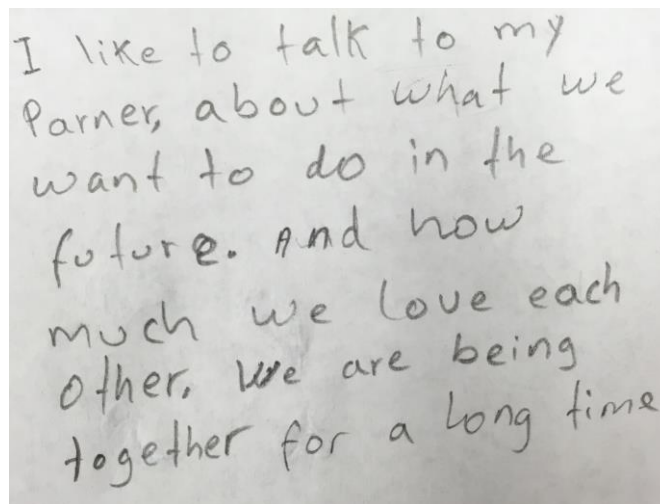 I like to talk to my
Parner, about what we
want to do in the
future. And how
much we love each
other. We are being
together for a long time